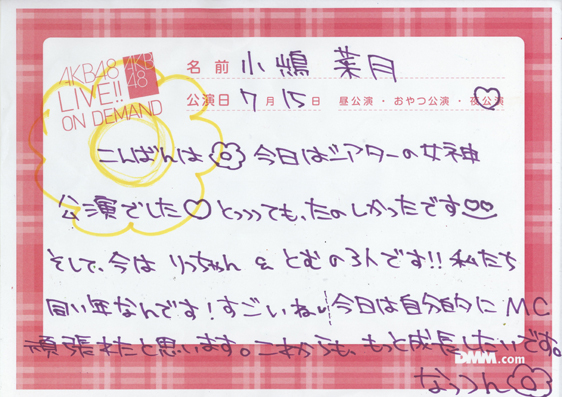 AKB48
AKB
48
LIVE!!
ON DEMAND
名前 小嶋菜月
公演日 7月15日 昼公演・おやつ公演・夜公演
こんばんは 今日はシアターの女神
公演でした♡とっっっても、たのしかったです
そして、今は りっちゃん & とむの3人です!! 私たち
同い年なんです!すごいね 今日は自分的にMC
頑張れたと思います。これからも、もっと成長したいです。
DMM.com
なっつん